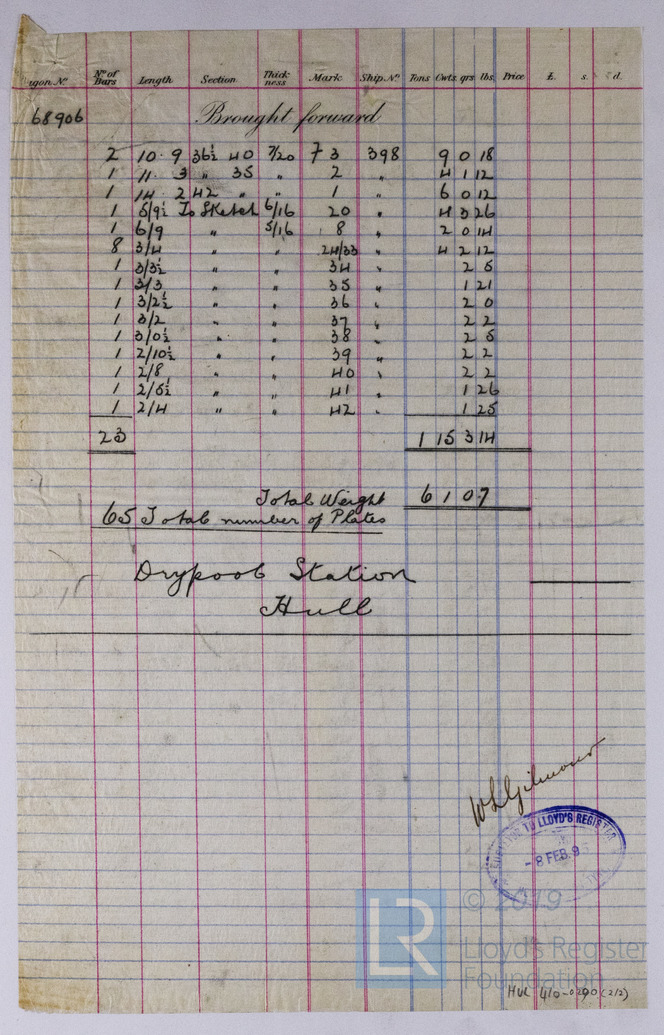 Nº of Bars Length Section Thickness Mark Ship Nº Tons Cwts. qrs lbs. Price £. s. d.
68906 Brought forward
2 10 · 9 36½ 40 7/20 7 3 398 9 0 18
1 11 · 3 " 35 " 2 " 4 1 12
1 14 · 2 42 " " 1 " 6 0 12
1 5/9½ To Sketch 6/16 20 " 4 3 26
1 6/9 " 5/16 8 " 2 0 14
8 3/4 " " 24/33 " 4 2 12
1 3/3½ " " 34 " 2 5
1 3/3 " " 35 " 1 21
1 3/2½ " " 36 " 2 0
1 3/2 " " 37 " 2 2
1 3/0½ " " 38 " 2 5
1 2/10½ " " 39 " 2 2
1 2/8 " " 40 " 2 2
1 2/5½ " " 41 " 1 26
1 2/4 " " 42 " 1 25
23 1 15 3 14
Total Weight 6 1 0 7
65 Total number of Plates
Drypool Station
Hull
W L Gilmour
SURVEYOR TO LLOYD'S REGISTER
- 8 FEB. 9
© 2019
LR
Lloyd's Register
Foundation
HUL 410-0290 (2/2)